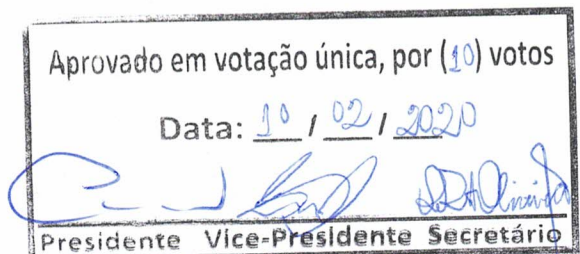 Aprovado em votação única, por (10) votos
Data: 10 / 02 / 2020
Presidente Vice-Presidente Secretário